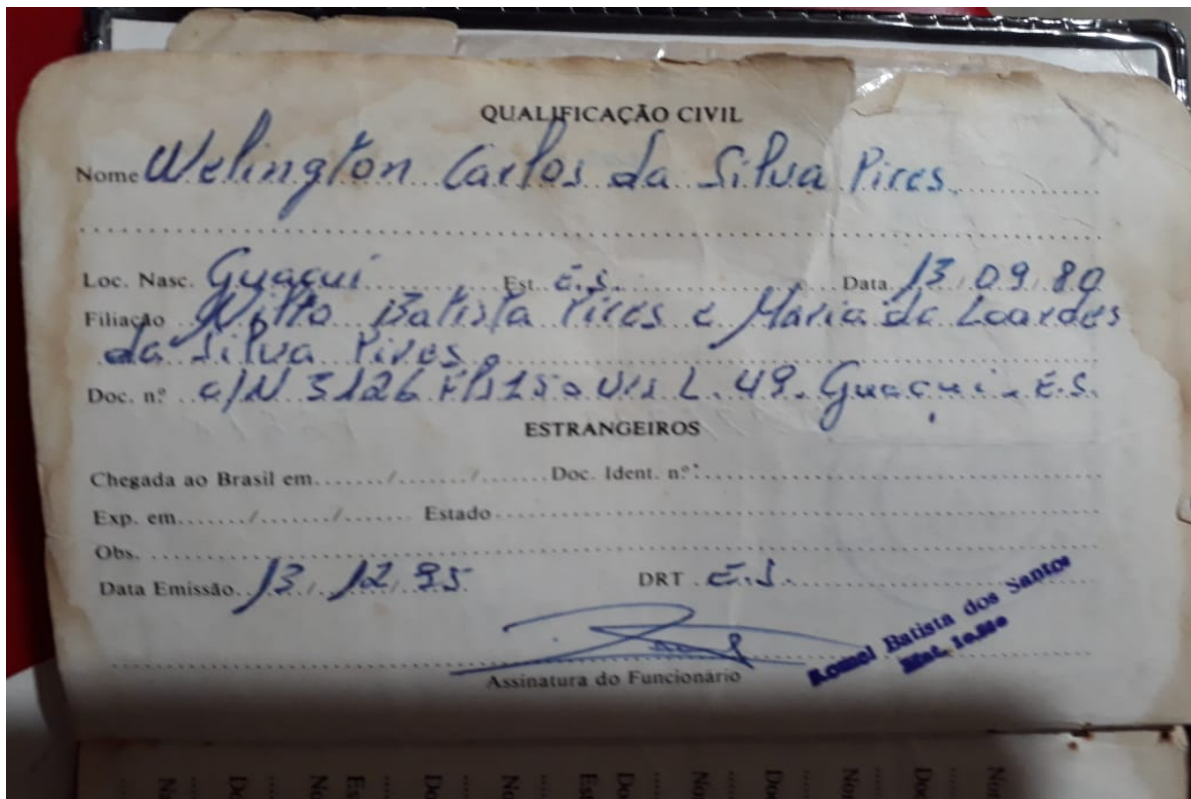 QUALIFICAÇÃO CIVIL
Nome Welington Carlos da Silva Pires
Loc. Nasc. Guaçui Est. E.S. Data 13/09/80
Filiação Batista Pires e Maria de Lourdes
da Silva Pires
Doc. n.º C/N 3126 Fls 150 Vrs L. 49. Guaçui - E.S.
ESTRANGEIROS
Chegada ao Brasil em ......./......./....... Doc. Ident. n.º
Exp. em ......./......./....... Estado
Obs.
Data Emissão 13/12/95 DRT E.S.
Romel Batista dos Santos
Mat.
Assinatura do Funcionário